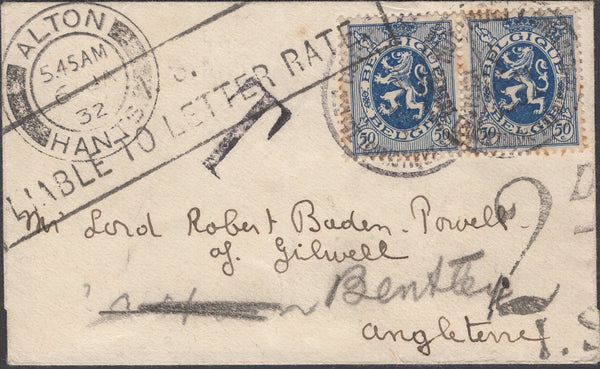 ALTON
545AM
32
HANTS
LIABLE TO LETTER RATE
T
BELGIQUE
50 50
BELGIË
BELGIQUE
50 50
BELGIË
Mr Lord Robert Baden-Powell
of Gilwell
Bentley
Angleterre
2
D
I.S